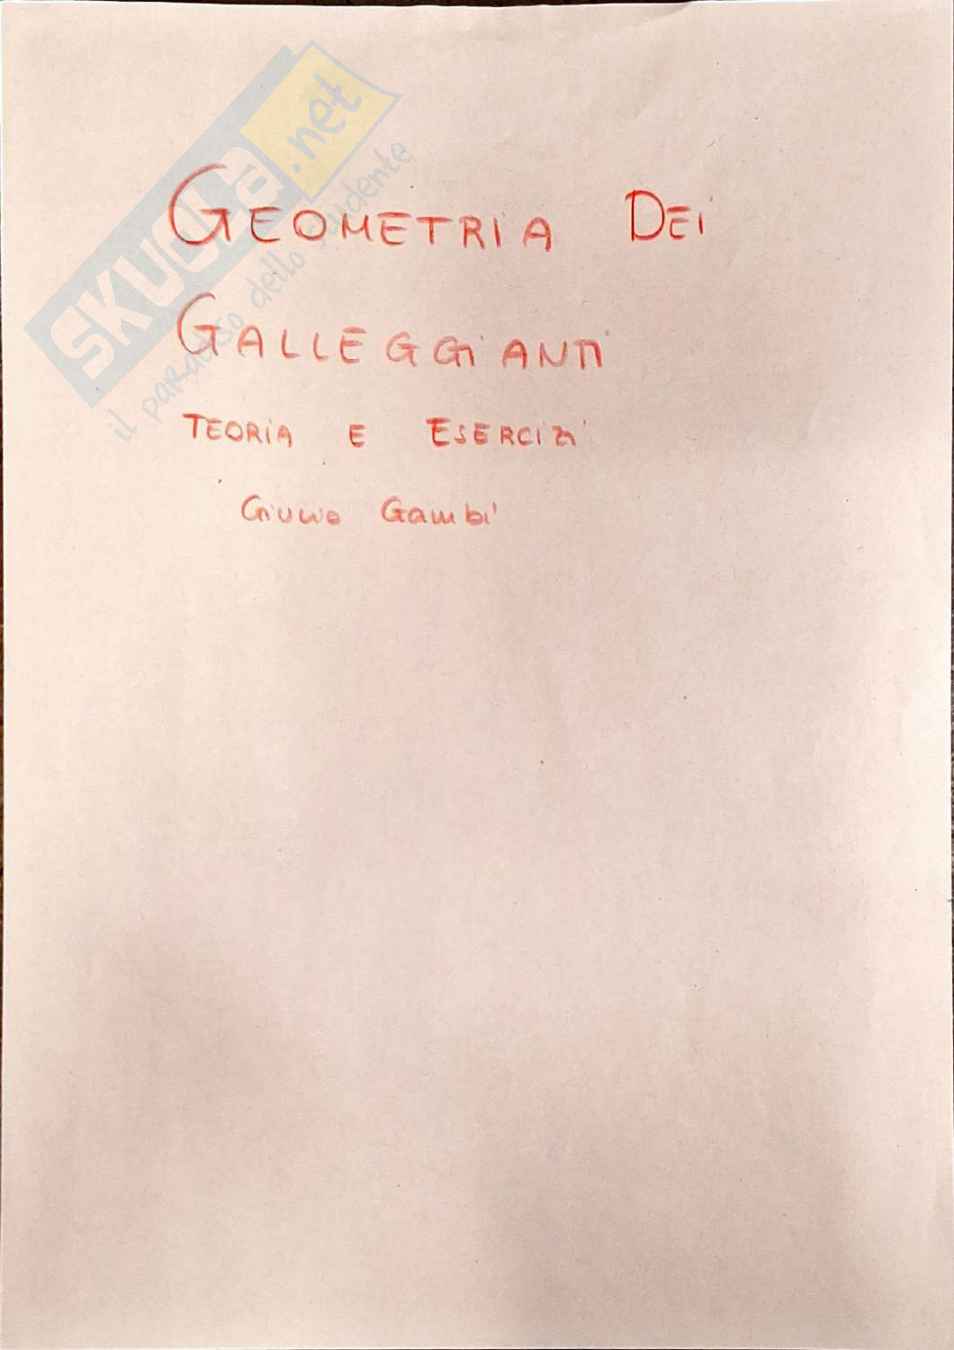 SKUOLA.net
il paradiso dello studente
GEOMETRIA DEI
GALLEGGIANTI
TEORIA E ESERCIZI
Giulio Gambi